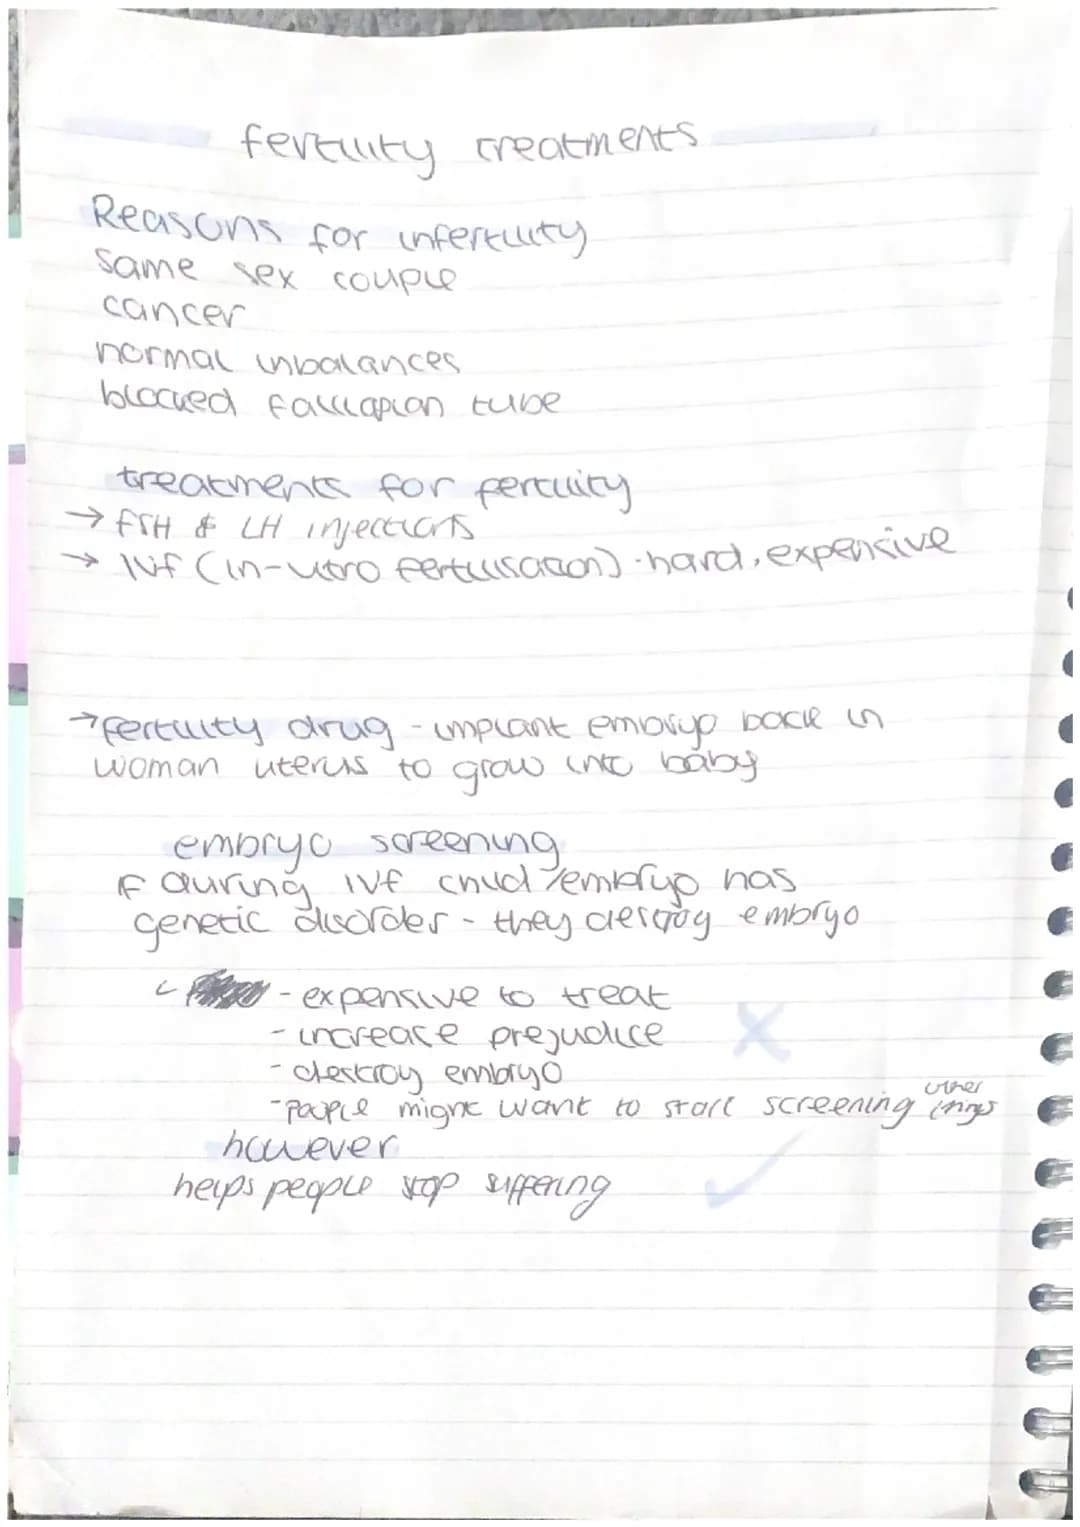 fertility treatments
Reasons for infertility
same sex couple
cancer
normal inbalances
blocked fallapian tube
treatments for fertility
→ FSH & LH injections
→ IVF (in-vitro fertilisation) - hard, expensive
→ fertility drug - implant embryo back in
woman uterus to grow into baby
embryo screening
if during IVF child/embryo has
genetic disorder - they destroy embryo
- expensive to treat
- increase prejudice
- destroy embryo
- people might want to start screening other things
however
helps people stop suffering